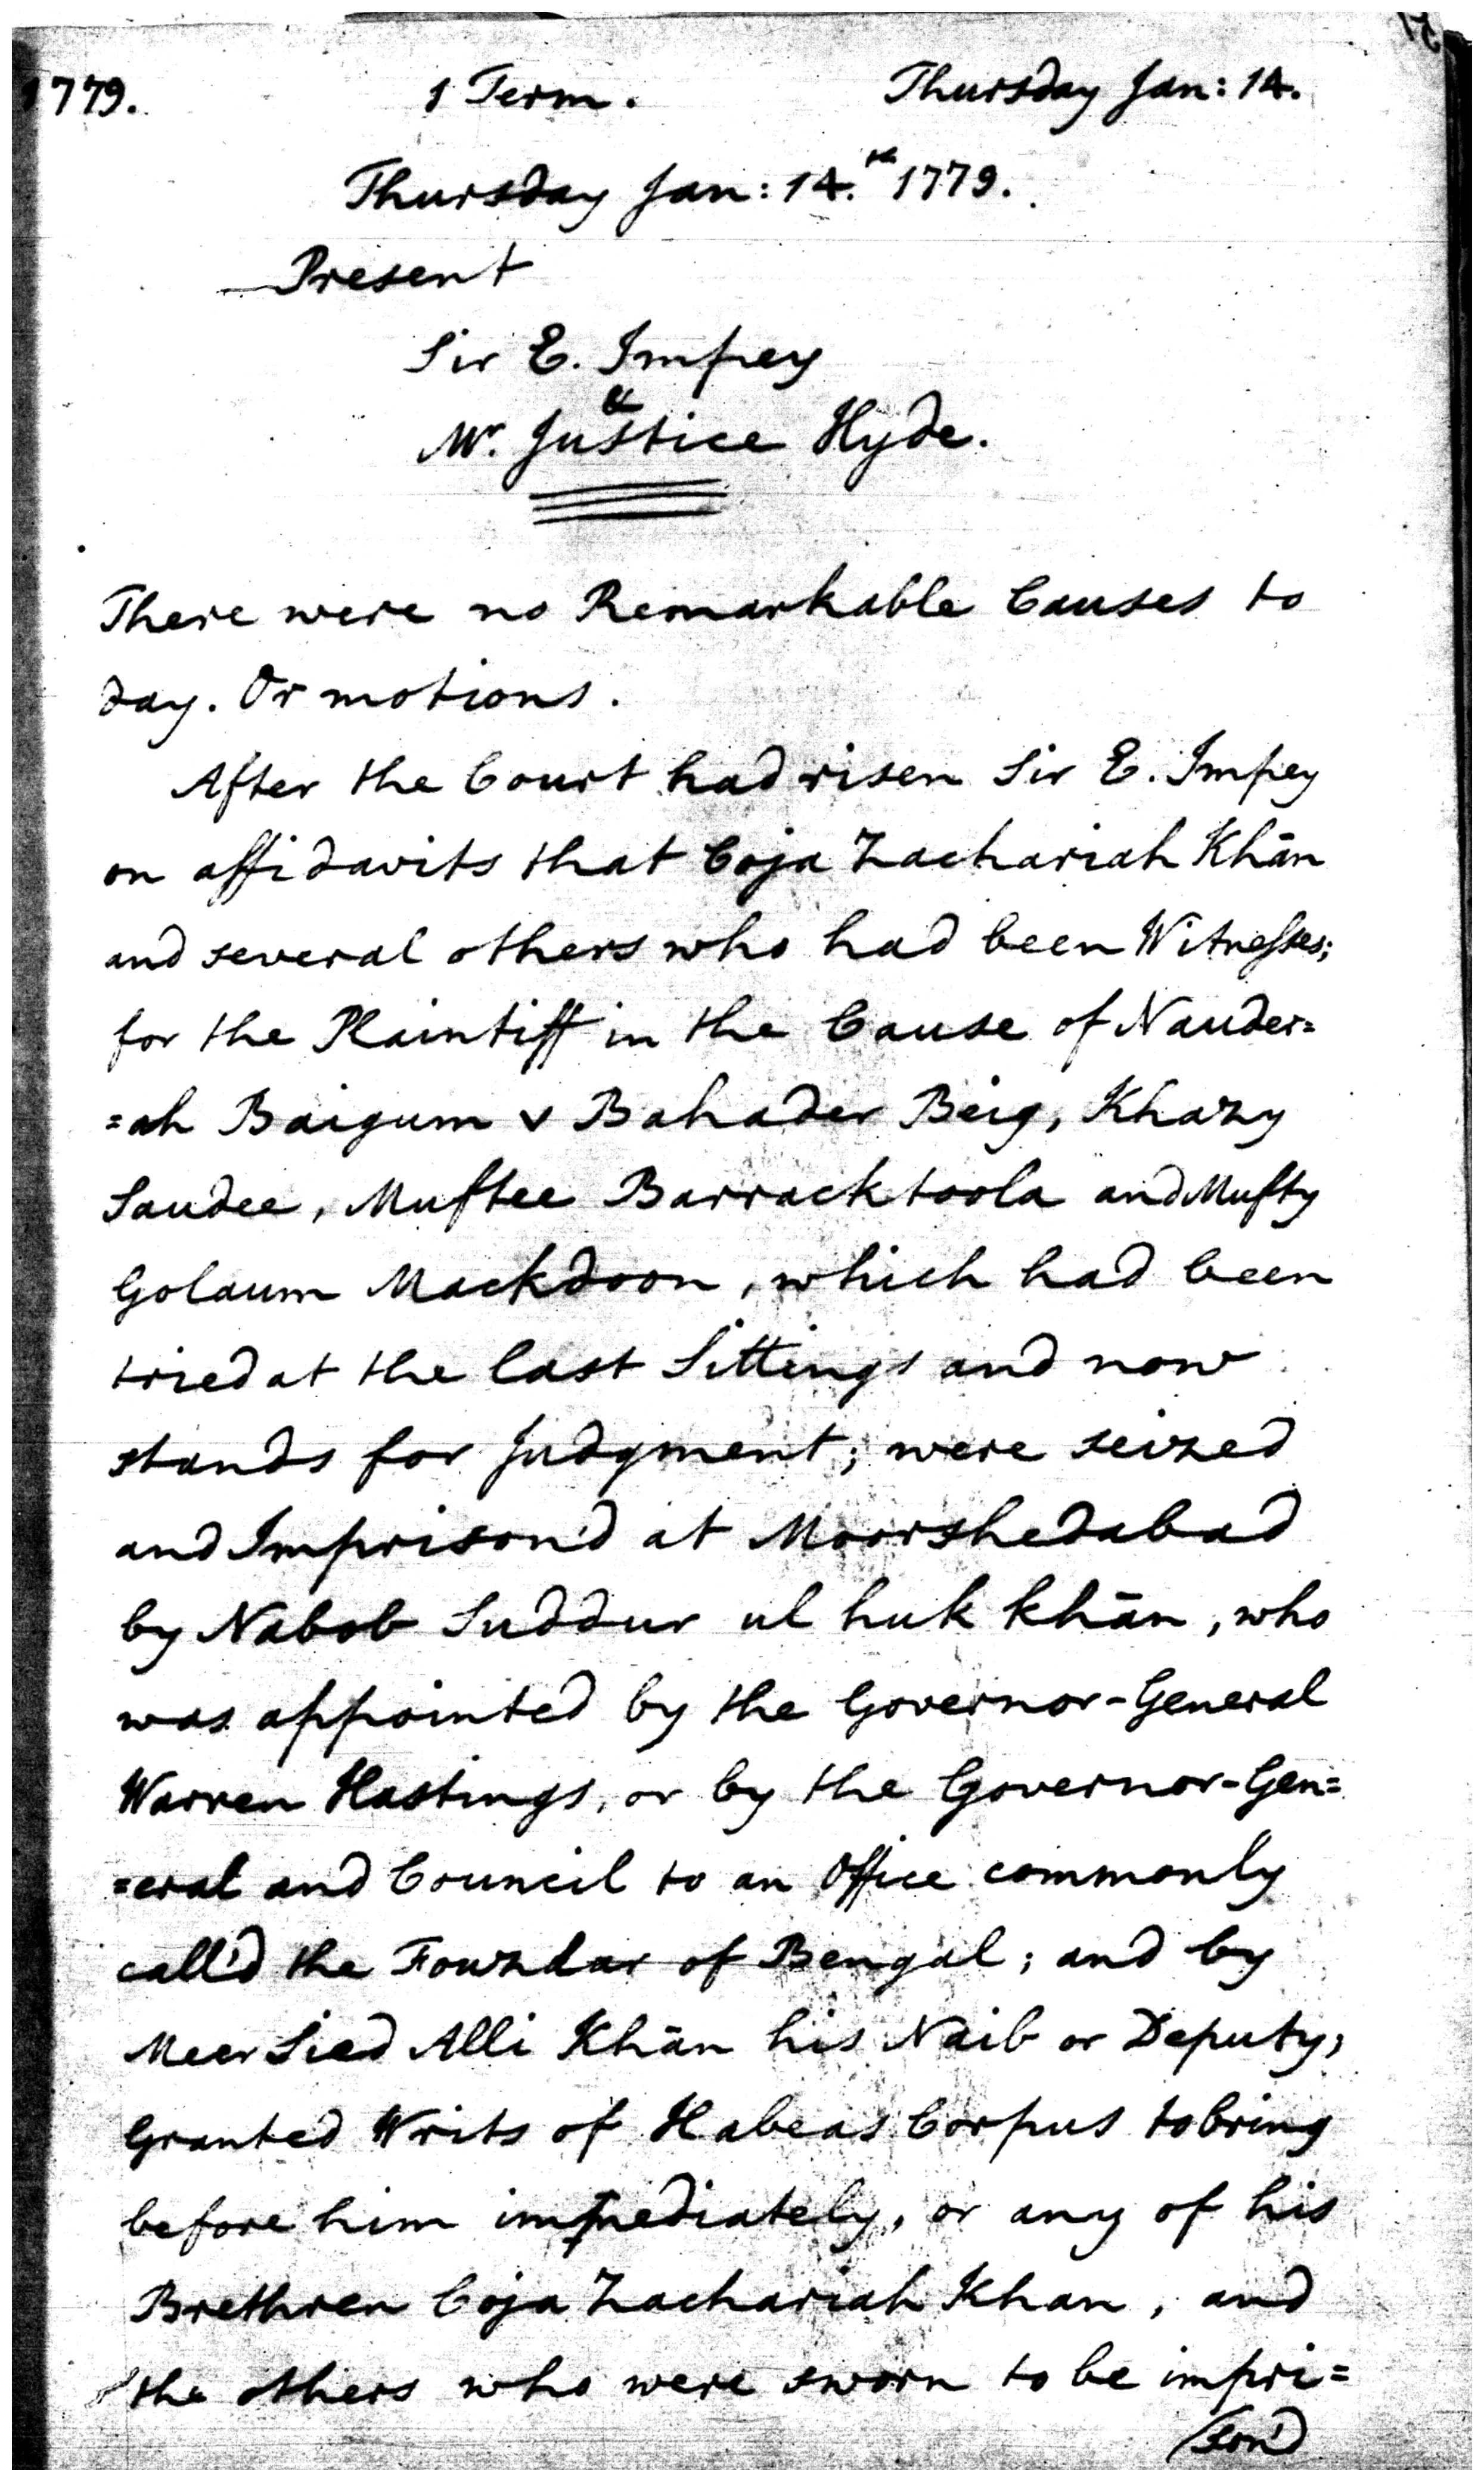 1779. 1 Term. Thursday Jan: 14.
Thursday Jan: 14.th 1779.
Present
Sir E. Impey
&
Mr. Justice Hyde.
There were no Remarkable Causes to
day. Or motions.
After the Court had risen Sir E. Impey
on affidavits that Coja Zachariah Khān
and several others who had been Witnesses;
for the Plaintiff in the Cause of Nauder=
=ah Baigum v Bahader Beig, Khazy
Saudee, Muftee Barracktoola and Mufty
Golaum Mackdoon, which had been
tried at the last Sittings and now
stands for Judgment; were seized
and Imprison'd at Moorshedabad
by Nabob Suddur ul huk khān, who
was appointed by the Governor-General
Warren Hastings, or by the Governor-Gen=
=eral and Council to an Office commonly
call'd the Fowzdar of Bengal; and by
Meer Sied Alli Khān his Naib or Deputy,
Granted Writs of Habeas Corpus to bring
before him immediately, or any of his
Brethren Coja Zachariah Khan, and
the others who were sworn to be impri=
son'd